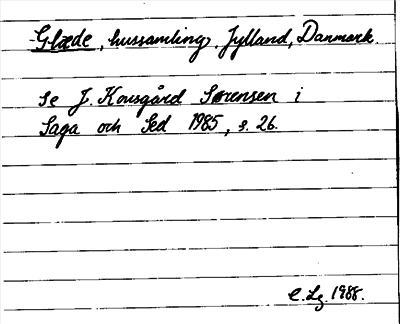 -Glæde, hussamling. Jylland, Danmark.
Se J. Kousgård Sørensen i
Saga och Sed 1985, s. 26.
E.Lg. 1988.